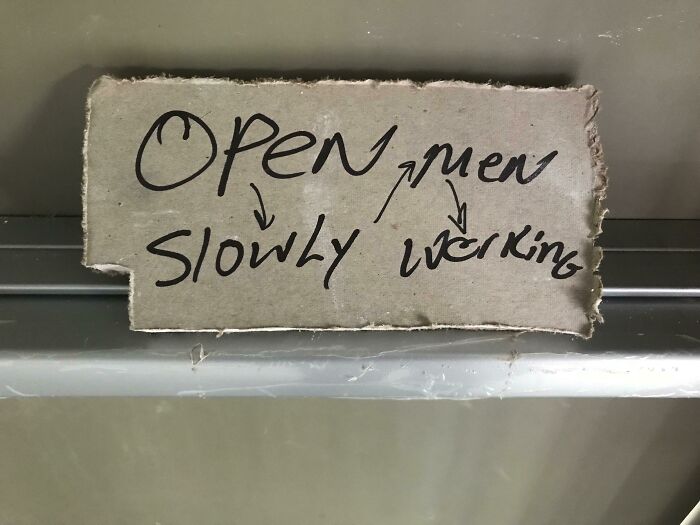 OPEN MEN
SLOWLY WORKING